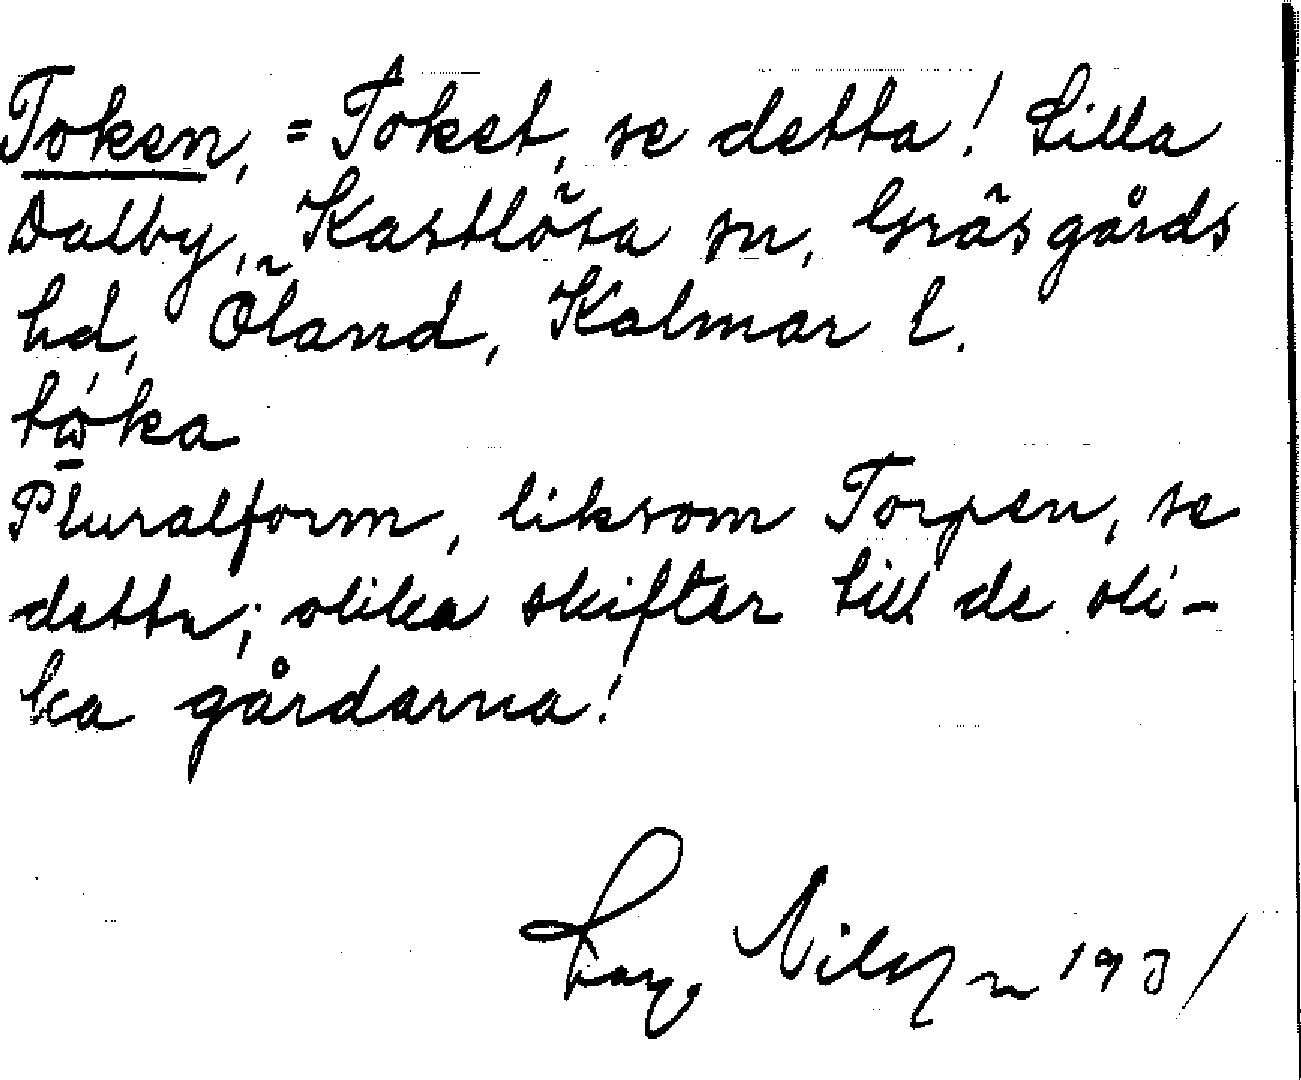 Token, = Toket, se detta! Lilla
Dalby, Kastlösa sn, Gräsgårds
hd, Öland, Kalmar l.
Pluralform, liksom Torpen, se
detta; olika skifter till de oli-
ka gårdarna!
Nilsson 1931